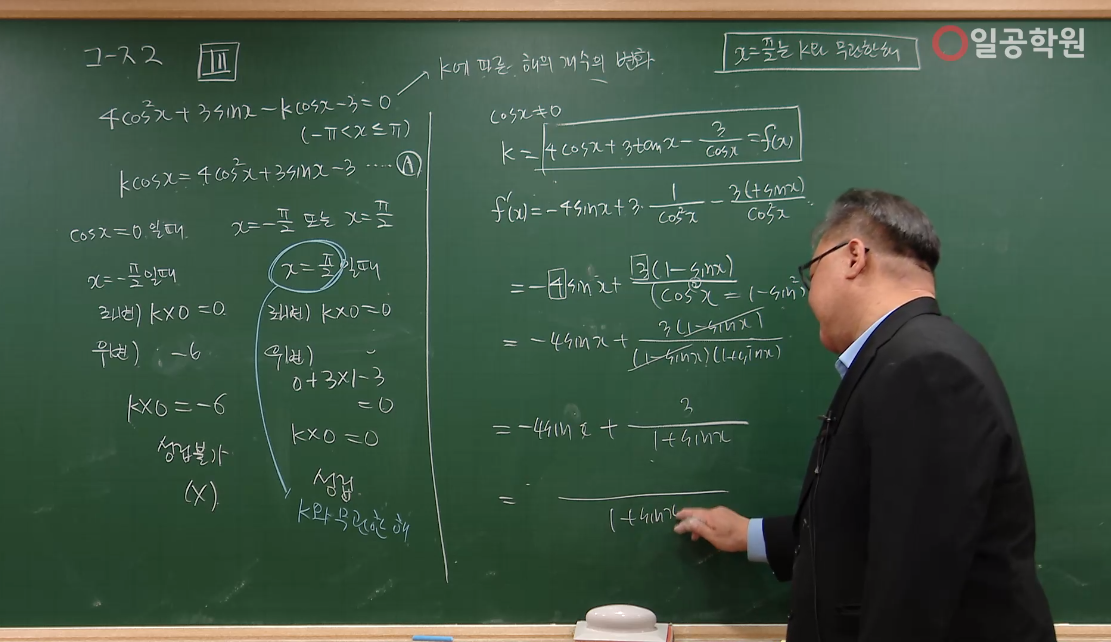 ㄱ-ㅈ2
III
k에 따른 해의 개수의 변화
x=π/2는 k와 무관한 해
일공학원
4cos²x+3sinx-kcosx-3=0
(-π<x≤π)
kcosx=4cos²x+3sinx-3 ····· Ⓐ
cosx=0일때 x=-π/2 또는 x=π/2
x=-π/2일때
좌변) k×0=0
우변) -6
k×0=-6
성립불가
(X)
x=π/2일때
좌변) k×0=0
우변)
0+3×1-3
=0
k×0=0
성립
k와 무관한 해
cosx≠0
k=4cosx+3tanx-3/cosx=f(x)
f'(x)=-4sinx+3·1/cos²x-3(+sinx)/cos²x
=-4sinx+3(1-sinx)/(cos²x=1-sin²x
=-4sinx+3(1-sinx)/(1-sinx)(1+sinx)
=-4sinx+3/1+sinx
= /1+sinx